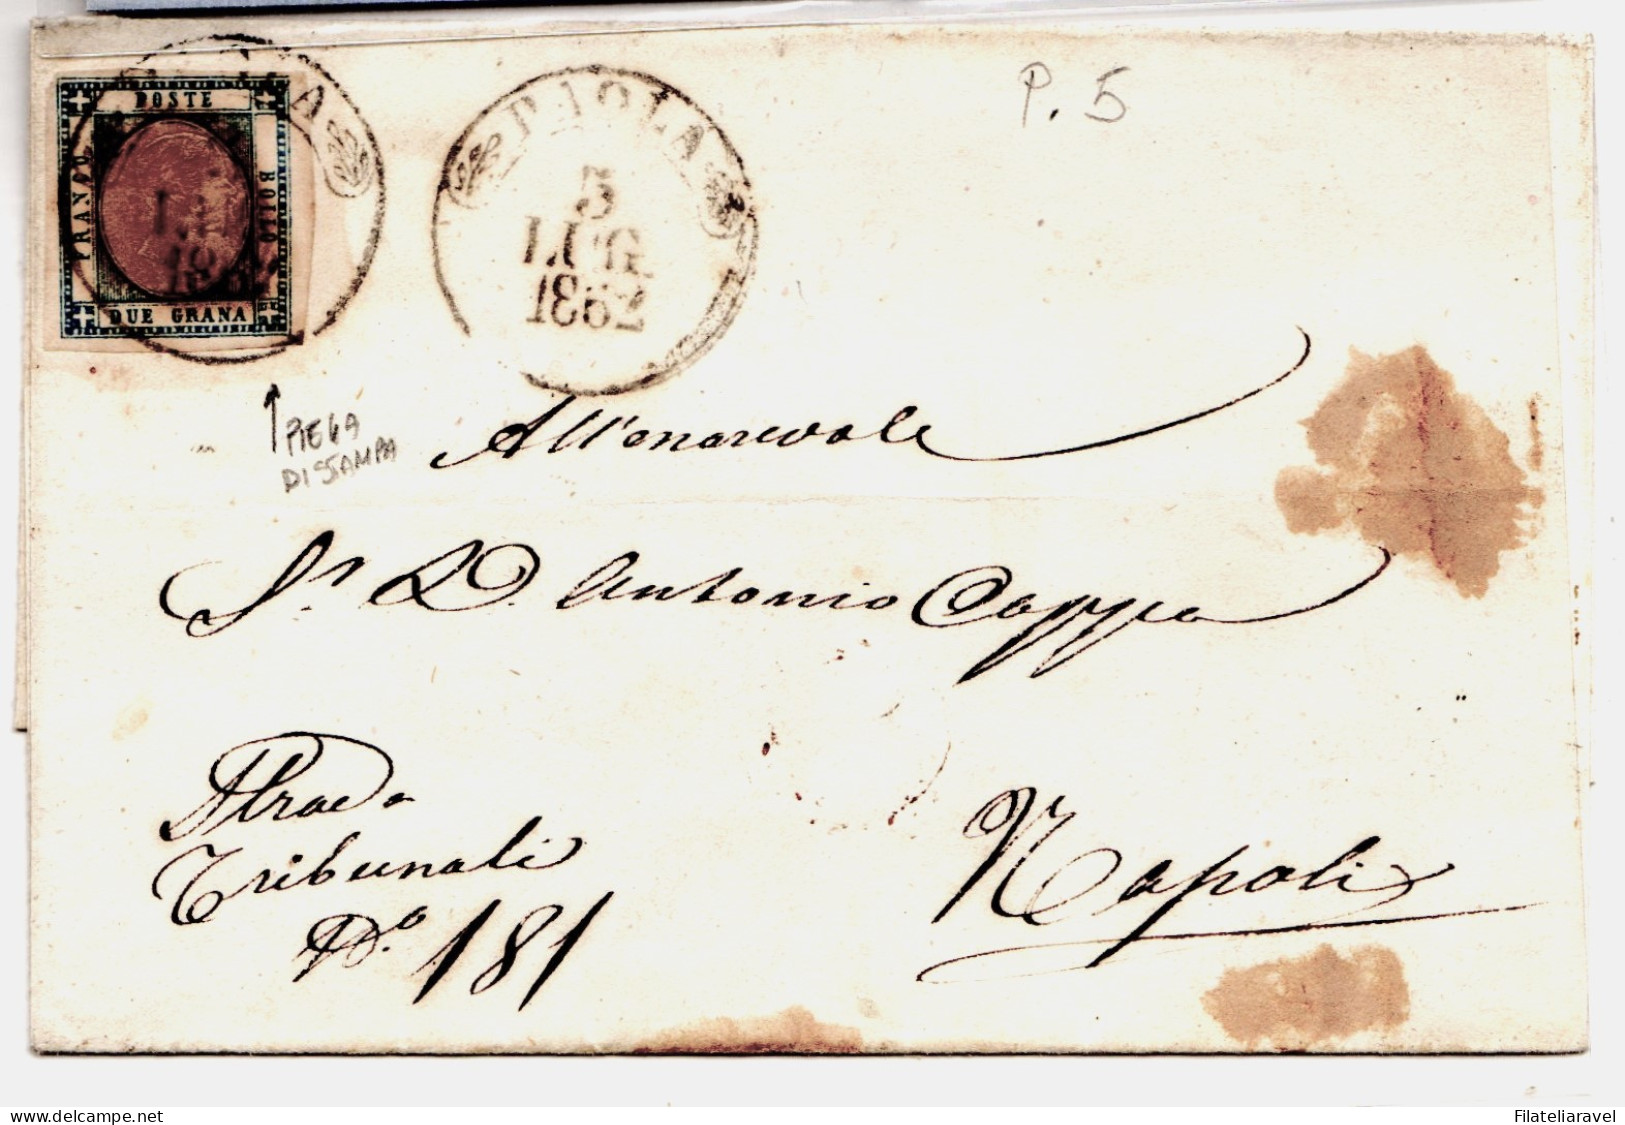 POSTE
FRANCO
BOLLO
DUE GRANA
PAOLA
5
LUG
1862
P. 5
PIEGA
DI STAMPA
All'onorevole
Sr. D. Antonio Cappa
Strada
Tribunali
No. 181
Napoli
delcampe.net
Filateliaravel